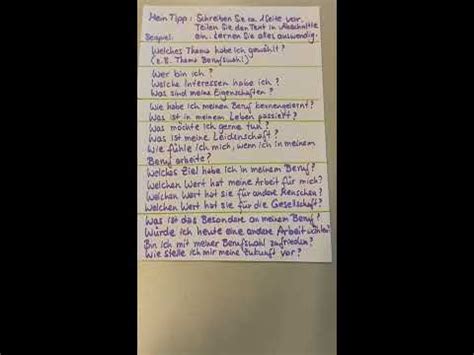 Mein Tipp: Schreiben Sie ca. 1 Seite vor.
Teilen Sie den Text in Abschnitte
Beispiel: ein. Lernen Sie alles auswendig.
Welches Thema habe ich gewählt?
(z.B. Thema Berufswahl)
Wer bin ich?
Welche Interessen habe ich?
Was sind meine Eigenschaften?
Wie habe ich meinen Beruf kennengelernt?
Was ist in meinem Leben passiert?
Was möchte ich gerne tun?
Was ist meine Leidenschaft?
Wie fühle ich mich, wenn ich in meinem
Beruf arbeite?
Welches Ziel habe ich in meinem Beruf?
Welchen Wert hat meine Arbeit für mich?
Welchen Wert hat sie für andere Menschen?
Welchen Wert hat sie für die Gesellschaft?
Was ist das Besondere an meinem Beruf?
Würde ich heute eine andere Arbeit wählen?
Bin ich mit meiner Berufswahl zufrieden?
Wie stelle ich mir meine Zukunft vor?